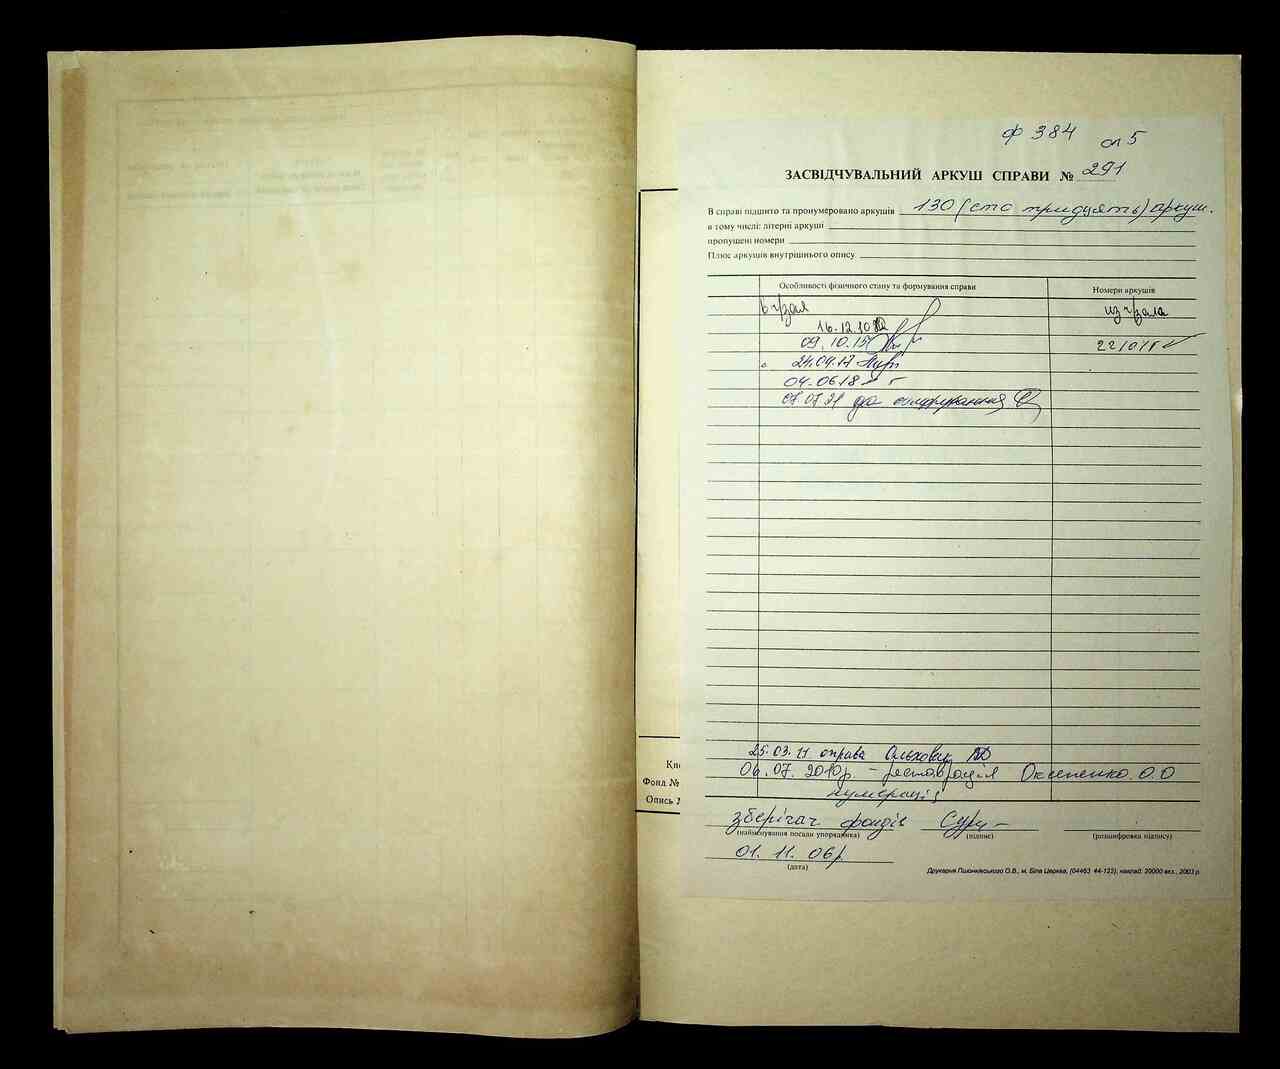 ф 384 оп 5
ЗАСВІДЧУВАЛЬНИЙ АРКУШ СПРАВИ № 291
В справі підшито та пронумеровано аркушів 130 (сто тридцять) аркуш.
в тому числі: літерні аркуші
пропущені номери
Плюс аркушів внутрішнього опису
Особливості фізичного стану та формування справи Номери аркушів
в ч/зал из ч/зала
16.12.10
09.10.15 22/01/
24.04.17
04.06.18
07.07.21 до сканування
25.03.11 оправа Ольховик
06.07.2010р. – реставрація Оксененко О.О
нумерація
зберігач фондів
(найменування посади упорядника) (підпис) (розшифровка підпису)
01.11.06р
(дата)
Друкарня Пшонківського О.В., м. Біла Церква, (04463 44-123), наклад. 20000 екз., 2003 р.
Фонд №
Опись